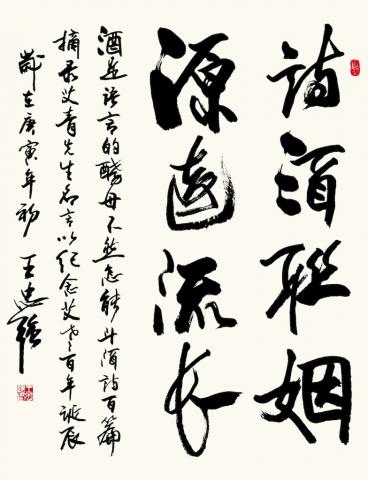 诗酒联姻
源远流长
酒是语言的酵母不然怎能斗酒诗百篇
摘录艾青先生名言以纪念艾老百年诞辰
岁在庚寅年初 王忠